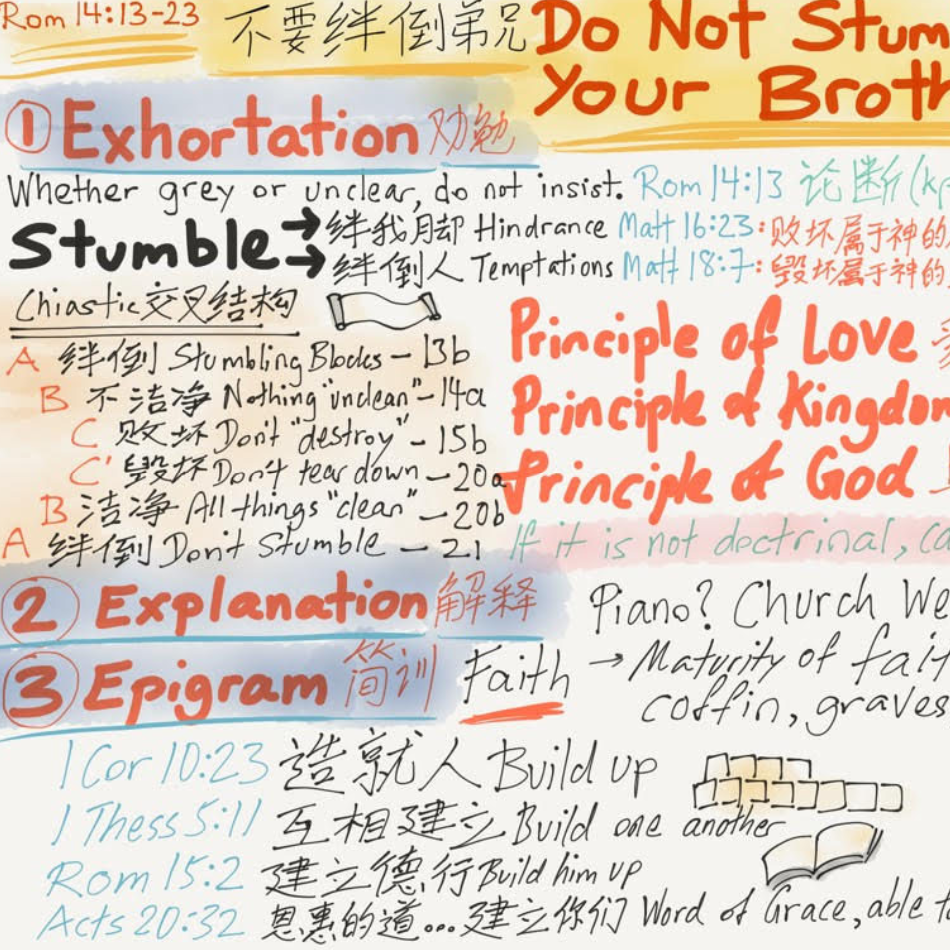 Rom 14:13-23 不要绊倒弟兄 Do Not Stum
Your Broth
① Exhortation 劝勉
Whether grey or unclear, do not insist. Rom 14:13 论断(kp
Stumble → 绊我脚 Hindrance Matt 16:23: 败坏属于神的
→ 绊倒人 Temptations Matt 18:7: 毁坏属于神的
Chiastic 交叉结构
A 绊倒 Stumbling Blocks - 13b
B 不洁净 Nothing "unclean" - 14a
C 败坏 Don't "destroy" - 15b
C' 毁坏 Don't tear down - 20a
B 洁净 All things "clean" - 20b
A 绊倒 Don't Stumble - 21
Principle of Love
Principle of Kingdom
Principle of God
If it is not doctrinal, ca
② Explanation 解释
Piano? Church We
③ Epigram 简训 Faith → Maturity of fait
coffin, graves
1 Cor 10:23 造就人 Build up
1 Thess 5:11 互相建立 Build one another
Rom 15:2 建立德行 Build him up
Acts 20:32 恩惠的道...建立你们 Word of Grace, able t